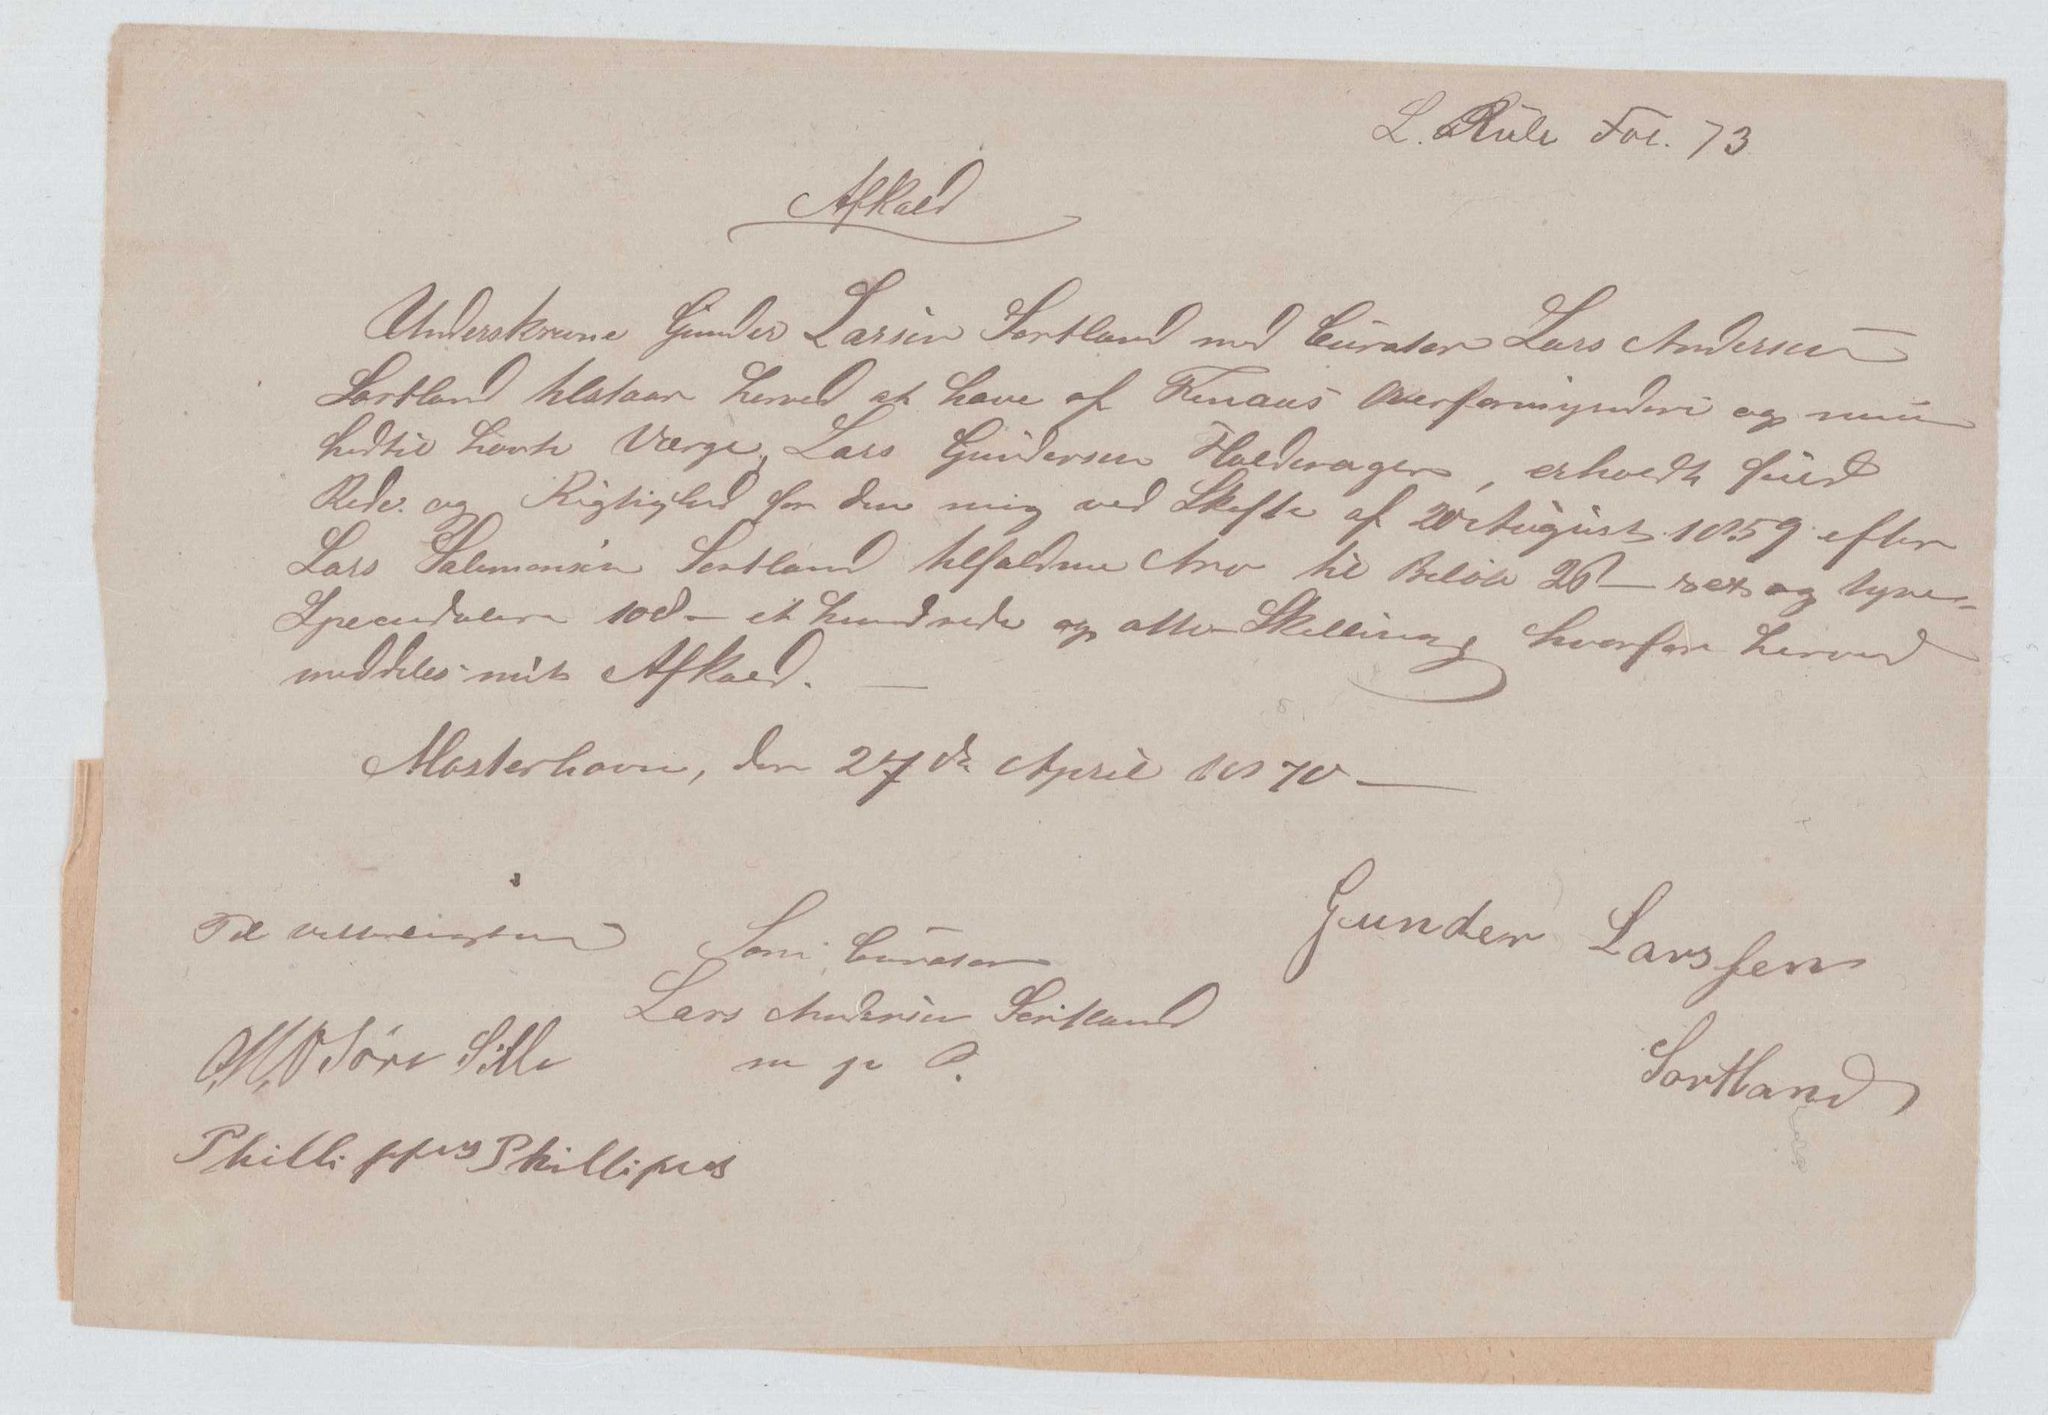 L. Rule Fol. 73
Afkald
Underskrevne Gunder Larsen Sortland med Curator Lars Andersen
Sortland tilstaar herved at have af Finaas Overformynderi og min
hidtil havte Værge, Lars Gundersen Folderager, erholdt fuld
Rede og Rigtighed for den mig ved Skifte af 20 August 1859 efter
Lars Salemonsen Sortland tilfaldne Arv til Beløb 26 – sex og tyve –
Speciedalere 108 – et hundrede og otte – Skilling hvorfor herved
meddeles mit Afkald. —
Mosterhavn, den 27de April 1870 —
Til Vitterlighed
Som Curator
Gunder Larssen
Lars Andersen Sortland
m p
Sortland
Phillippus Phillipus